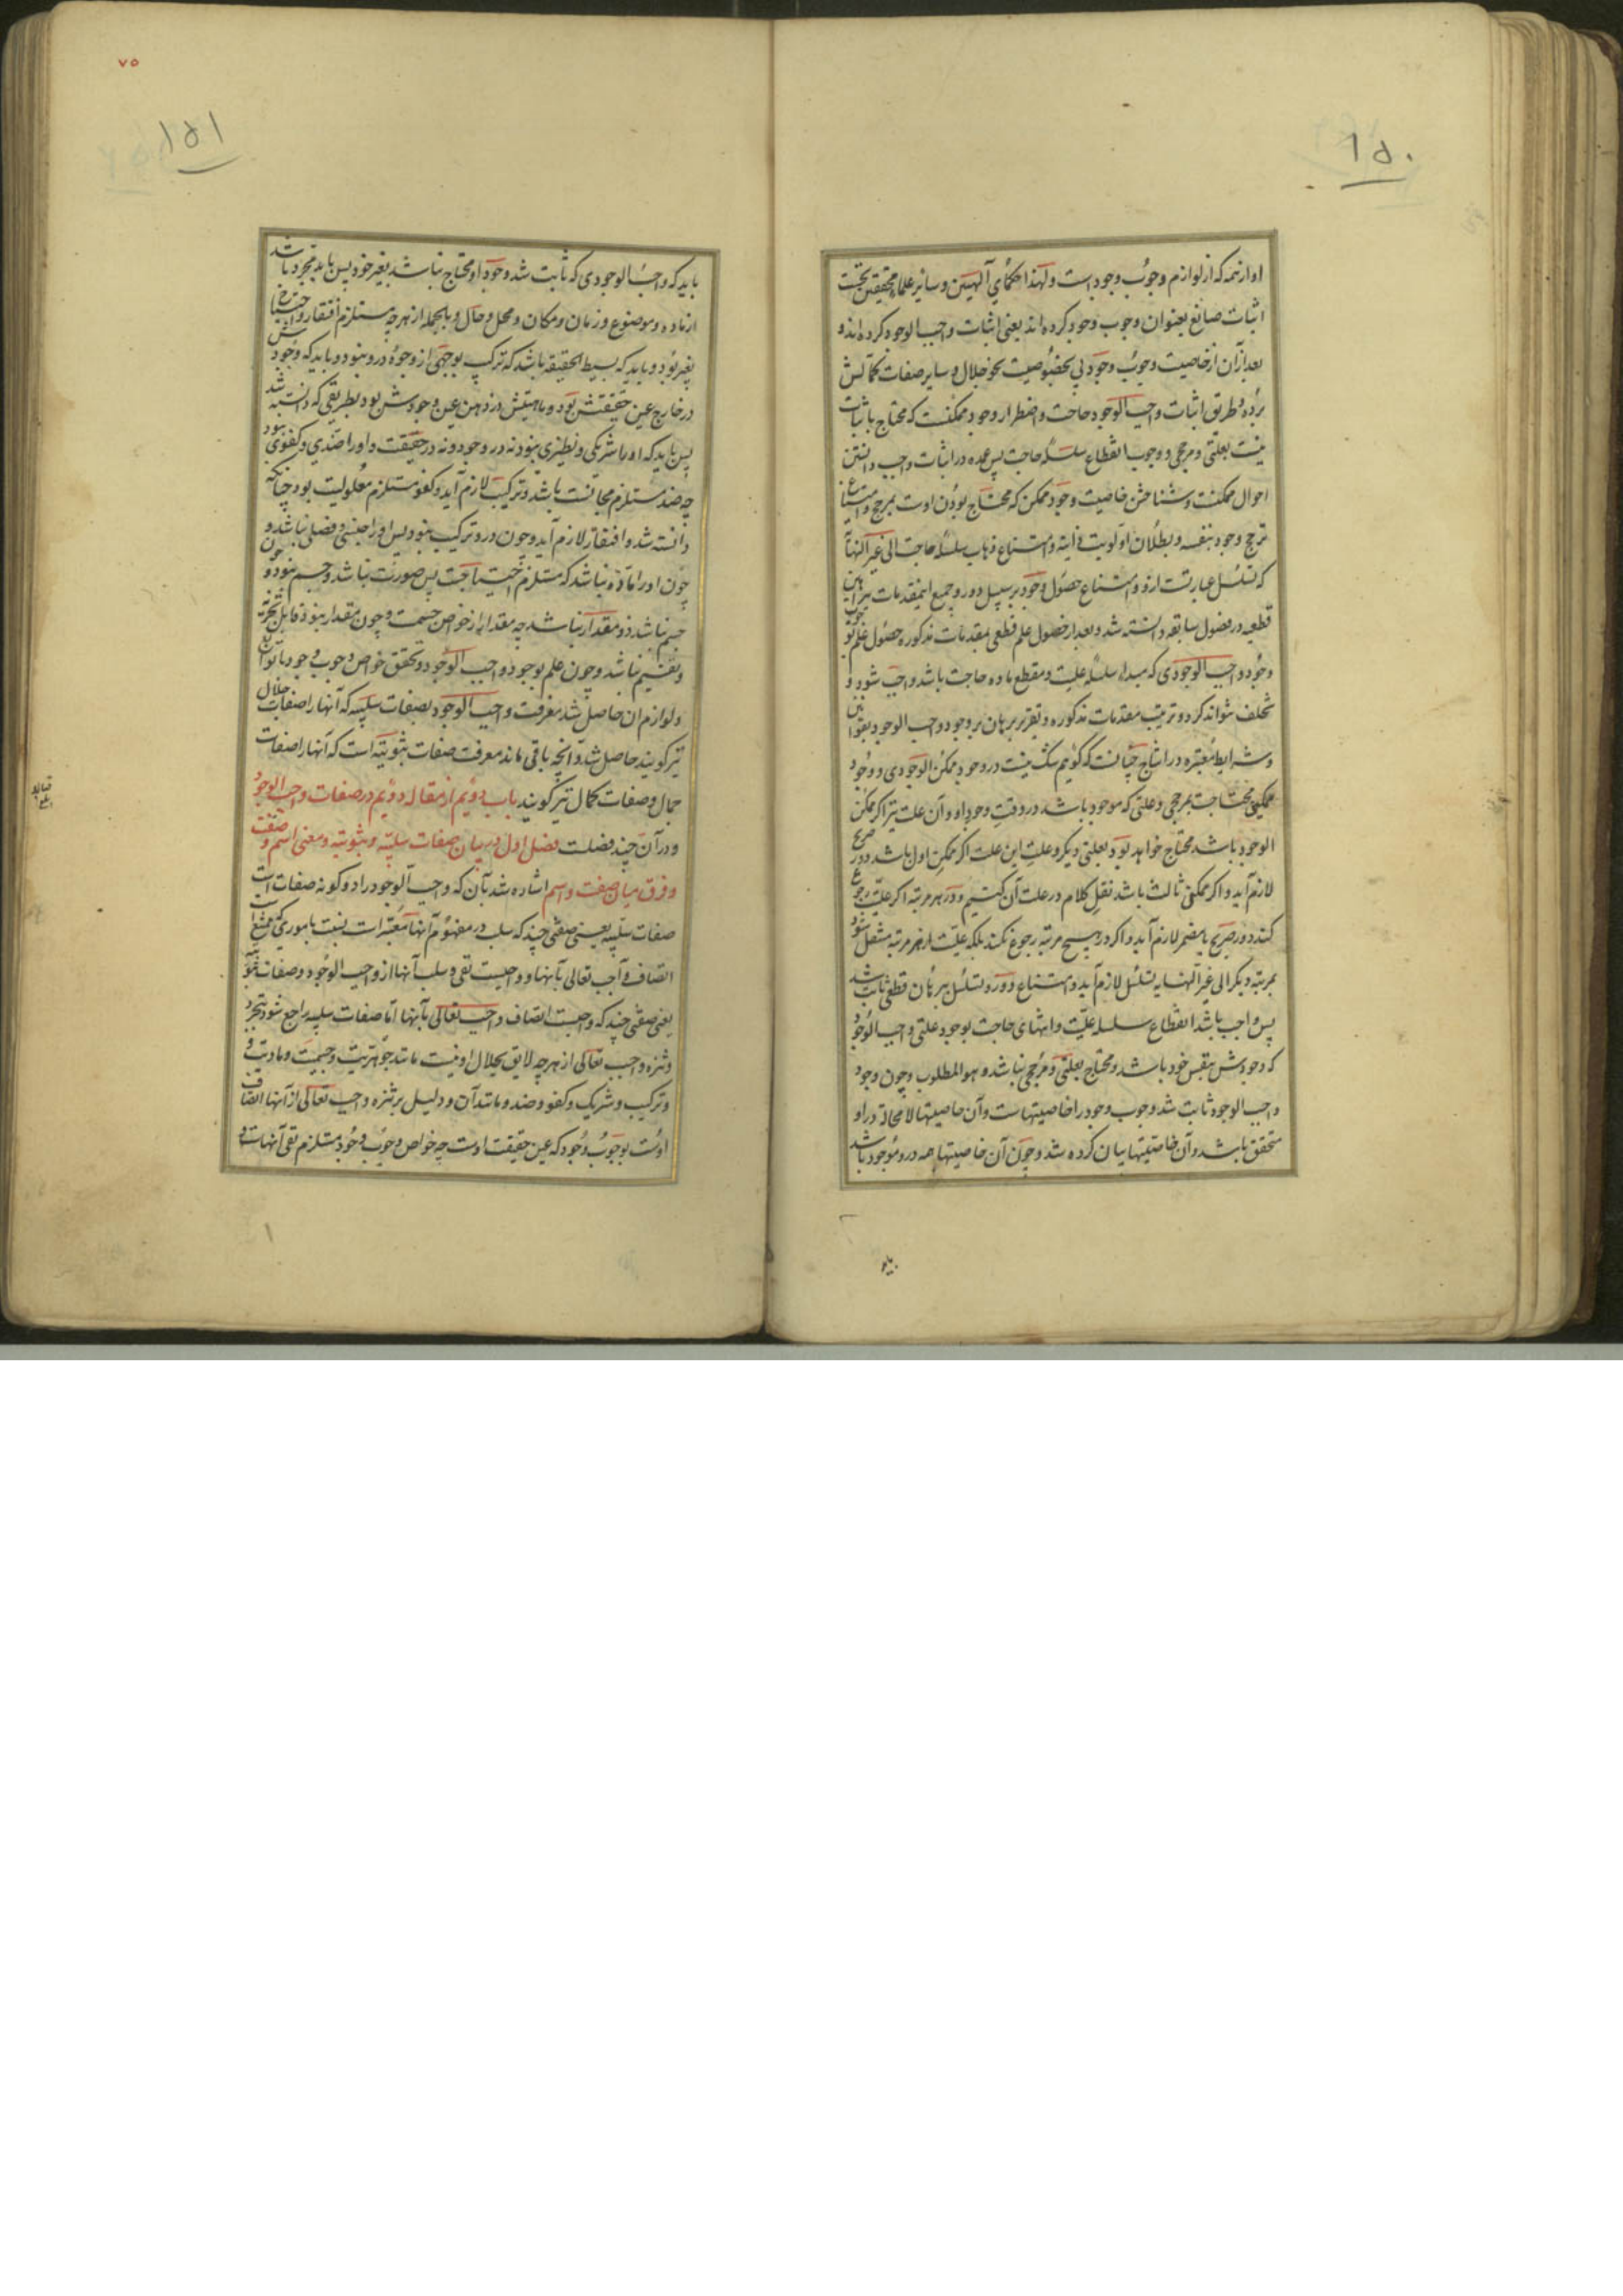 ١٥٠
او از همه که از لوازم وجوب وجود است ولهذا حکمای آلهیین و سایر علماء محققین نخست
اثبات صانع بعنوان وجوب وجود کرده‌اند یعنی اثبات واجب الوجود کرده‌اند و
بعد از آن از خاصیت وجوب وجود پی بخصوصیت نحو جلال و سایر صفات کمالش
برده و طریق اثبات واجب الوجود حاجت و اضطرار وجود ممکنست که محتاج باثبات
نیست بعلتی و مرجحی و وجوب انقطاع سلسله حاجت پس عمده در اثبات واجب دانستن
احوال ممکنست و شناختن خاصیت وجود ممکن که محتاج بودن اوست بمرجح و امتناع
ترجح وجود بنفسه و بطلان اولویت ذاتیه و امتناع ذهاب سلسله حاجت الی غیر النهایه
که تسلسل عبارتست ازو و امتناع حصول وجود بر سبیل دور و جمیع اینمقدمات ببراهین
قطعیه در فصول سابقه دانسته شد و بعد از حصول علم قطعی بمقدمات مذکوره حصول علم بوجوب
وجود واجب الوجودی که مبداء سلسله علیت و مقطع ماده حاجت باشد واجب شود و
تخلف نتواند کرد و ترتیب مقدمات مذکوره و تقریر برهان بر وجود واجب الوجود بقوانین
و شرایط معتبره در انتاج چنانست که گوئیم شک نیست در وجود ممکن الوجودی و وجود
ممکنی محتاجست بمرجحی و علتی که موجود باشد در وقت وجود او و آن علت نیز اگر ممکن
الوجود باشد محتاج خواهد بود بعلتی دیگر و علت این علت اگر ممکن اول باشد دور صریح
لازم آید و اگر ممکنی ثالث باشد نقل کلام در علت آن کنیم و در هر مرتبه اگر علیت رجوع
کند دور صریح یا مضمر لازم آید و اگر در هیچ مرتبه رجوع نکند بلکه علیت از هر مرتبه منتقل شود
بمرتبه دیگر الی غیر النهایه تسلسل لازم آید و امتناع دور و تسلسل ببرهان قطعی ثابت شد
پس واجب باشد انقطاع سلسله علیت و انتهای حاجت بوجود علتی واجب الوجود
که وجودش بنفس خود باشد و محتاج بعلتی و مرجحی نباشد و هو المطلوب و چون وجود
واجب الوجود ثابت شد وجوب وجود را خاصیتهاست و آن خاصیتها لا محاله در او
متحقق باشد و آن خاصیتها بیان کرده شد و چون آن خاصیتها همه درو موجود باشد
باید
٧٥
١٥١
باید که واجب الوجودی که ثابت شد وجود او محتاج نباشد بغیر خود پس باید مجرد باشد
از ماده و موضوع و زمان و مکان و محل و حال و بالجمله از هرچه مستلزم افتقار و احتیاج
بغیر بود و باید که بسیط الحقیقه باشد که ترکیب بوجهی از وجوه درو نبود و باید که وجودش
در خارج عین حقیقتش بود و ماهیتش در ذهن عین وجودش بود بطریقی که دانسته شد
پس باید که او را شریکی و نظیری نبود نه در وجود و نه در حقیقت و او را ضدی و کفوی نبود
چه ضد مستلزم مجانست باشد و ترکیب لازم آید و کفو مستلزم معلولیت بود چنانکه
دانسته شد و افتقار لازم آید و چون درو ترکیب نبود پس او را جنسی و فصلی نباشد و
چون او را ماده نباشد که مستلزم احتیاجست پس صورت نباشد و جسم نبود و چون
جسم نباشد ذو مقدار نباشد چه مقدار از خواص جسمست و چون مقدار نبود قابل تجزیه
و تقسیم نباشد و چون علم بوجود واجب الوجود و تحقق خواص وجوب وجود با توابع
و لوازم ان حاصل شد معرفت واجب الوجود بصفات سلبیه که آنها را صفات جلال
نیز گویند حاصل شد و آنچه باقی ماند معرفت صفات ثبوتیه است که آنها را صفات
جمال و صفات کمال نیز گویند باب دوئم از مقاله دوئم در صفات واجب الوجود
و در آن چند فصلست فصل اول در بیان صفات سلبیه و ثبوتیه و معنی اسم و صفت
و فرق میان صفت و اسم اشاره شد بآن که واجب الوجود را دو گونه صفات است
صفات سلبیه یعنی صفتی چند که سلب در مفهوم آنها معتبر است نسبت باموری که ممتنع است
اتصاف واجب تعالی بآنها و واجبست نفی و سلب آنها از واجب الوجود و صفات ثبوتیه
یعنی صفتی چند که واجبست اتصاف واجب تعالی بآنها اما صفات سلبیه راجع شود بتجرد
و تنزه واجب تعالی از هرچه لایق بجلال او نیست مانند جوهریت و جسمیت و مادیت و
ترکیب و شریک و کفو و ضد و مانند آن و دلیل بر تنزه واجب تعالی از آنها اتصاف
اوست بوجوب وجود که عین حقیقت اوست چه خواص وجوب وجود مستلزم نفی آنهاست و